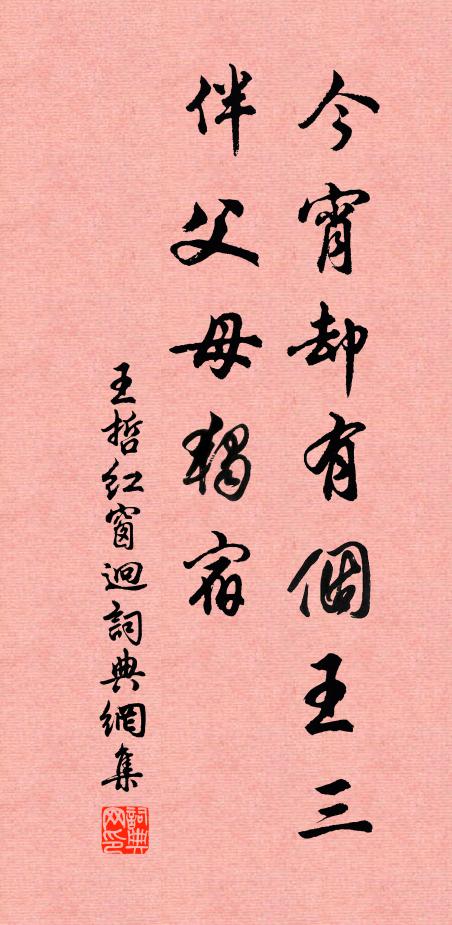 今宵却有個王三
伴父母獨宿
王哲紅窗迥詞典網集
詞典网印